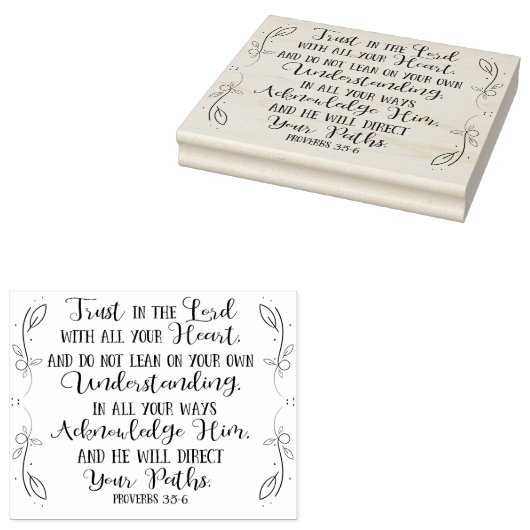 Trust IN THE Lord
WITH ALL YOUR Heart,
AND DO NOT LEAN ON YOUR OWN
Understanding,
IN ALL YOUR WAYS
Acknowledge Him,
AND HE WILL DIRECT
Your Paths.
PROVERBS 3:5-6
Trust IN THE Lord
WITH ALL YOUR Heart,
AND DO NOT LEAN ON YOUR OWN
Understanding,
IN ALL YOUR WAYS
Acknowledge Him,
AND HE WILL DIRECT
Your Paths.
PROVERBS 3:5-6